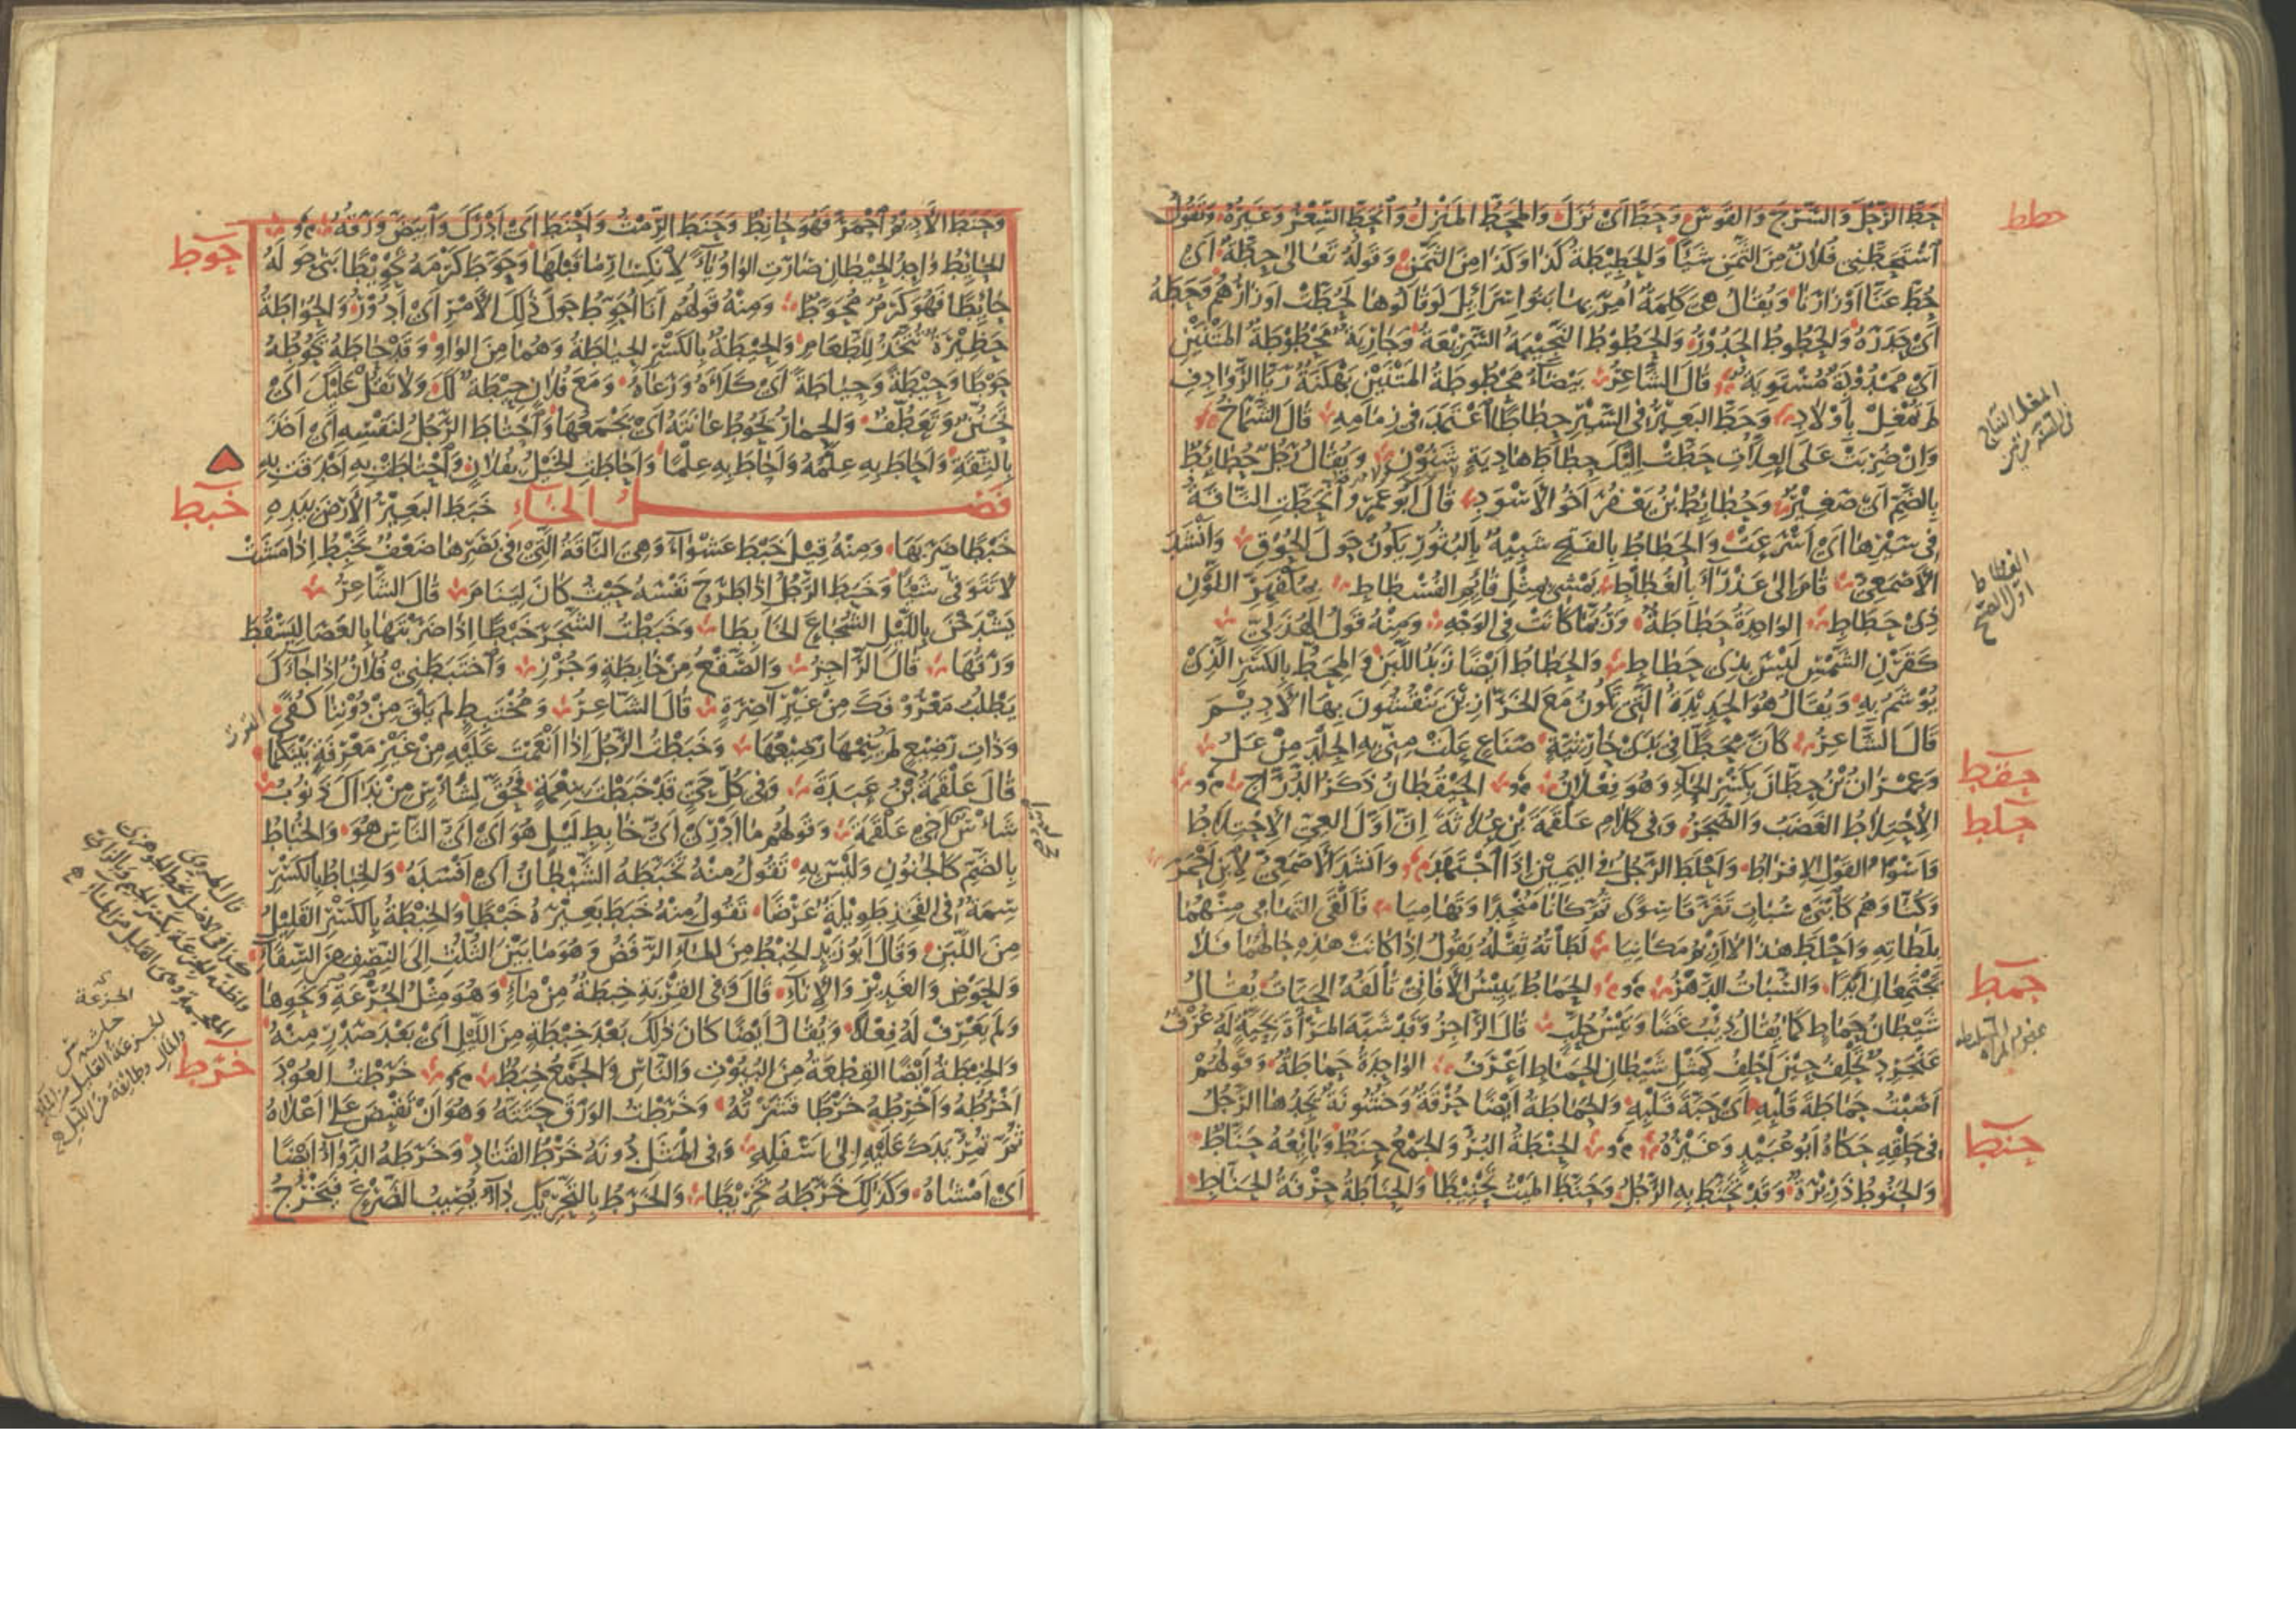 حطط
حط الرحل والسرج والقوس وحط اى نزل والمحط المنزل وانحط السعر وغيره وتقول
استحطنى فلان من الثمن شيأ والحطيطة كذا وكذا من الثمن وقوله تعالى حطة اى
حط عنا اوزارنا ويقال هى كلمة امر بها بنو اسرائل لو قالوها لحطت اوزارهم وحطه
اى حدره والحطوط الحدور والحطوط النجيبة السريعة وجارية محطوطة المتنين
اى ممدودة مستوية قال الشاعر بيضاء محطوطة المتنين بهكنة ريا الروادف
لم تمغل باولاد وحط البعير فى السير حطاطا اعتمد فى زمامه قال الشماخ
وان ضربت على العلات حطت اليك حطاط هادية شنون ويقال رجل حطائط
بالضم اى صغير وحطائط بن يعفر اخو الاسود قال ابو عمرو انحطت الناقة
فى سيرها اى اسرعت والحطاط بالفتح شبيه بالبثور يكون حول الحوق وانشد
الاصمعى قام الى عذراء بالغطاط يمشى بمثل قائم الفسطاط بمكفهر اللون
ذى حطاط الواحدة حطاطة وربما كانت فى الوجه ومنه قول الهذلى
كقرن الشمس ليس بذى حطاط والحطاط ايضا زبد اللبن والمحط بالكسر الذى
يوشم به ويقال هو الحديدة التى تكون مع الخرازين ينقشون بها الاديم
قال الشاعر كان محطا فى يدى حارثية صناع علت منى به الجلد من عل
وعمران بن حطان بكسر الحاء وهو فعلان الحيقطان ذكر الدراج
حقط
حلط
الاحتلاط الغضب والضجر وفى كلام علقمة بن علاثة ان اول العى الاحتلاط
واسوا القول الافراط واحلط الرجل فى اليمين اذا اجتهد وانشد الاصمعى لابن احمر
وكنا وهم كابنى سبات تفرقا سوى ثم كانا منجدا وتهاميا فالقى التهامى منهما
بلطاته واحلط هذا لا اريم مكانيا لطاته ثقله يقول اذا كانت هذه حالهما فلا
يجتمعان ابدا والسبات الدهر الحماط يبيس الافانى تالفه الحيات يقال
حمط
شيطان حماط كما يقال ذئب غضا وتيس حلب قال الراجز وقد شبه المرأة بحية له عرف
عنجرد تحلف حين احلف كمثل شيطان الحماط اعرف الواحدة حماطة وقولهم
اصبت حماطة قلبه اى حبة قلبه والحماطة ايضا حرقة وخشونة يجدها الرجل
فى حلقه حكاه ابو عبيد وغيره الحنطة البر والجمع حنط وبائعه حناط
حنط
والحنوط ذريرة وقد تحنط به الرجل وحنط الميت تحنيطا والحناطة حرفة الحناط
وحنط الاديم احمر فهو حانط وحنط الرمث واحنط اى ادرك وابيض ورقه
حوط
الحائط واحد الحيطان صارت الواو ياء لانكسار ما قبلها وحوط كرمه تحويطا بنى حوله
حائطا فهو كرم محوط ومنه قولهم انا احوط حول ذلك الامر اى ادور والحواطة
حظيرة تتخذ للطعام والحيطة بالكسر الحياطة وهما من الواو وقد حاطه يحوطه
حوطا وحيطة وحياطة اى كلأه ورعاه ومع فلان حيطة لك ولا تقل عليك اى
تحنن وتعطف والحمار يحوط عانته اى يجمعها واحتاط الرجل لنفسه اى اخذ
بالثقة واحاط به علمه واحاط به علما واحاطت الخيل بفلان واحتاطت به احدقت به
فصل الخاء خبط البعير الارض بيده
خبط
خبطا ضربها ومنه قيل خبط عشواء وهى الناقة التى فى بصرها ضعف تخبط اذا مشت
لا تتوقى شيئا وخبط الرجل اذا طرح نفسه حيث كان لينام قال الشاعر
يشدخن بالليل الشجاع الخابطا وخبطت الشجر خبطا اذا ضربتها بالعصا ليسقط
ورقها قال الراجز والصقع من خابطة وجرز واختبطنى فلان اذا جاءك
يطلب معروفك من غير آصرة قال الشاعر ومختبط لم يلق من دوننا كفى
وذات رضيع لم ينمها رضيعها وخبطت الرجل اذا انعمت عليه من غير معرفة بينكما
قال علقمة بن عبدة وفى كل حى قد خبطت بنعمة فحق لشأس من نداك ذنوب
شأس اخى علقمة وقولهم ما ادرى اى خابط ليل هو اى اى الناس هو والخباط
بالضم كالجنون وليس به تقول منه تخبطه الشيطان اى افسده والخباط بالكسر
سمة فى الفخذ طويلة عرضا تقول منه خبط بعيره خبطا والخبطة بالكسر القليل
من اللبن وقال ابو زيد الخبط من الماء الرفض وهو ما بين الثلث الى النصف من السقاء
والحوض والغدير والاناء قال وفى القربة خبطة من ماء وهو مثل الجزعة ونحوها
ولم يعرف له فعلا ويقال ايضا كان ذلك بعد خبطة من الليل اى بعد صدر منه
والخبطة ايضا القطعة من البيوت والناس والجمع خبط خرطت العود
خرط
اخرطه واخرطه خرطا قشرته وخرطت الورق حتته وهو ان تقبض على اعلاه
ثم تمر يدك عليه الى اسفله وفى المثل دونه خرط القتاد وخرطه الدواء ايضا
اى امشاه وكذلك خرطه تخريطا والخرط بالتحريك داء يصيب الضرع فيخرج